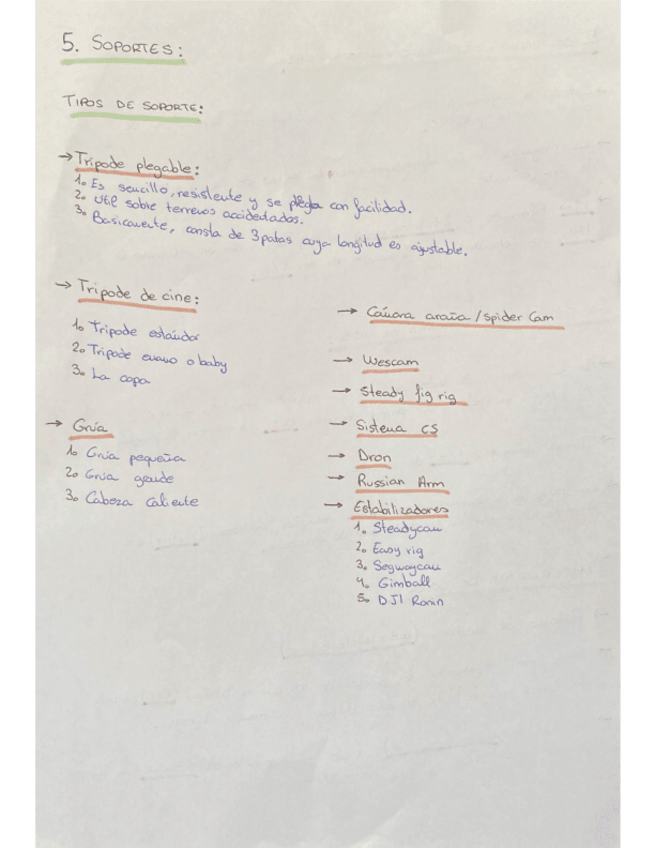 5. SOPORTES:
TIPOS DE SOPORTE:
→ Trípode plegable:
1. Es sencillo, resistente y se plega con facilidad.
2. Util sobre terrenos accidentados.
3. Basicamente, consta de 3 patas cuya longitud es ajustable.
→ Trípode de cine:
1. Tripode estándar
2. Tripode enano o baby
3. La copa
→ Grúa
1. Grúa pequeña
2. Grúa grande
3. Cabeza Caliente
→ Cámara araña / Spider Cam
→ Wescam
→ Steady fig rig
→ Sistema CS
→ Dron
→ Russian Arm
→ Estabilizadores
1. Steadycam
2. Easy rig
3. Segwaycam
4. Gimball
5. DJI Ronin